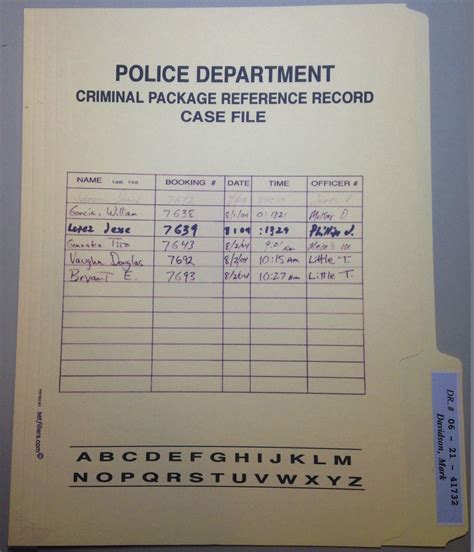 POLICE DEPARTMENT
CRIMINAL PACKAGE REFERENCE RECORD
CASE FILE
NAME Last, First BOOKING # DATE TIME OFFICER #
Garcia, William 7638 8/1/04 01:32 McKay D
Lopez Jesse 7639 8 1 04 :1329 Phillips J.
Gonzales Tito 7643 8/2/04 9:01
Vaughn Douglas 7692 8/2/04 10:15 AM Little T.
Bryant E. 7693 8/2/04 10:27 am Little T.
A B C D E F G H I J K L M
N O P Q R S T U V W X Y Z
DR.# 06 - 21 - 41732
Davidson, Mark